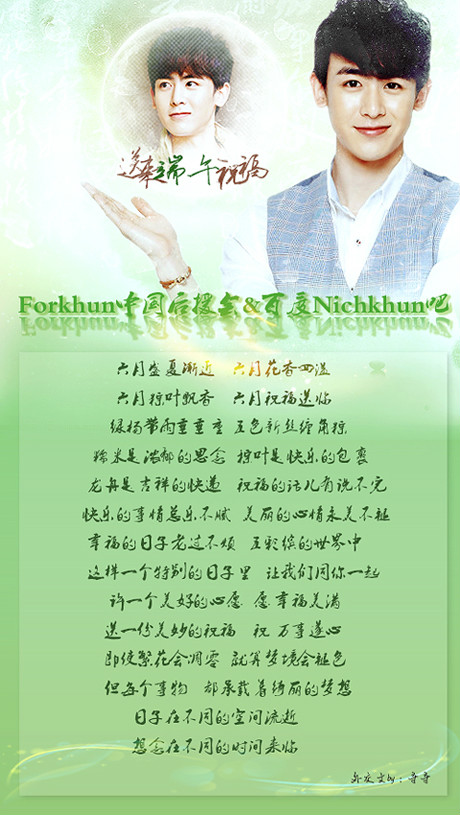 送来端午祝福
Forkhun中国后援会&百度Nichkhun吧
六月盛夏渐近 六月花香四溢
六月粽叶飘香 六月祝福送临
绿杨带雨垂垂重 五色新丝缠角粽
糯米是浓郁的思念 粽叶是快乐的包裹
龙舟是吉祥的快递 祝福的话儿有说不完
快乐的事情总乐不腻 美丽的心情永美不褪
幸福的日子老过不烦 五彩缤的世界中
这样一个特别的日子里 让我们同你一起
许一个美好的心愿 愿幸福美满
送一份美妙的祝福 祝 万事遂心
即使繁花会凋零 就算梦境会褪色
但每个事物 都承载着绮丽的梦想
日子在不同的空间流逝
想念在不同的时间来临